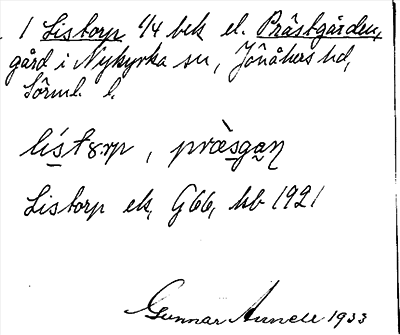 1 Listorp 1/4 bek el. Prästgården,
gård i Nykyrka sn, Jönåkers hd,
Sörml. l.
lístorp, præ̀sgaɳ
Listorp ek, G66, hb 1921
Gunnar Arnell 1933